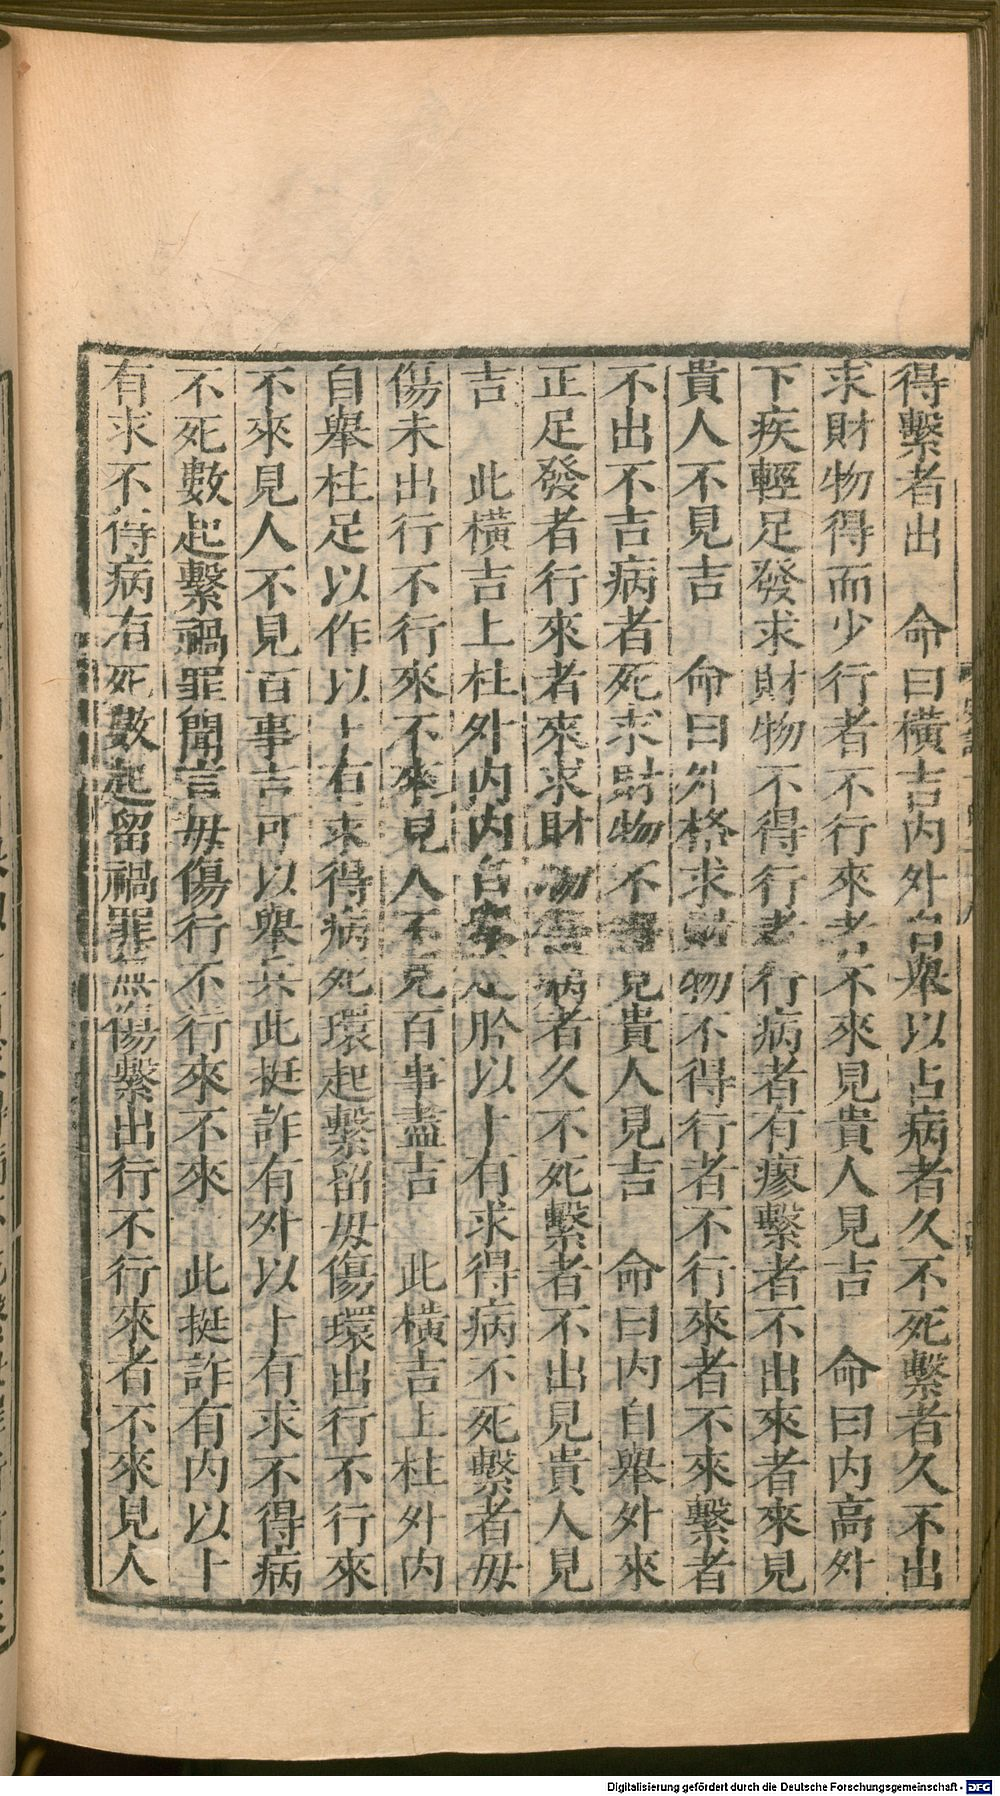 得繫者出　命曰橫吉內外自舉以占病者久不死繫者久不出
求財物得而少行者不行來者不來見貴人見吉　命曰內高外
下疾輕足發求財物不得行者行病者有瘳繫者不出來者來見
貴人不見吉　命曰外格求財物不得行者不行來者不來繫者
不出不吉病者死求財物不得見貴人見吉　命曰內自舉外來
正足發者行來者來求財物得病者久不死繫者不出見貴人見
吉　此橫吉上柱外內內自舉足肣以卜有求得病不死繫者毋
傷未出行不行來不來見人不見百事盡吉　此橫吉上柱外內
自舉柱足以作以卜有求得病死環起繫留毋傷環出行不行來
不來見人不見百事吉可以舉兵此挺詐有外以卜有求不得病
不死數起繫禍罪聞言毋傷行不行來不來　此挺詐有內以卜
有求不得病有死數起留禍罪無傷繫出行不行來者不來見人
Digitalisierung gefördert durch die Deutsche Forschungsgemeinschaft - DFG